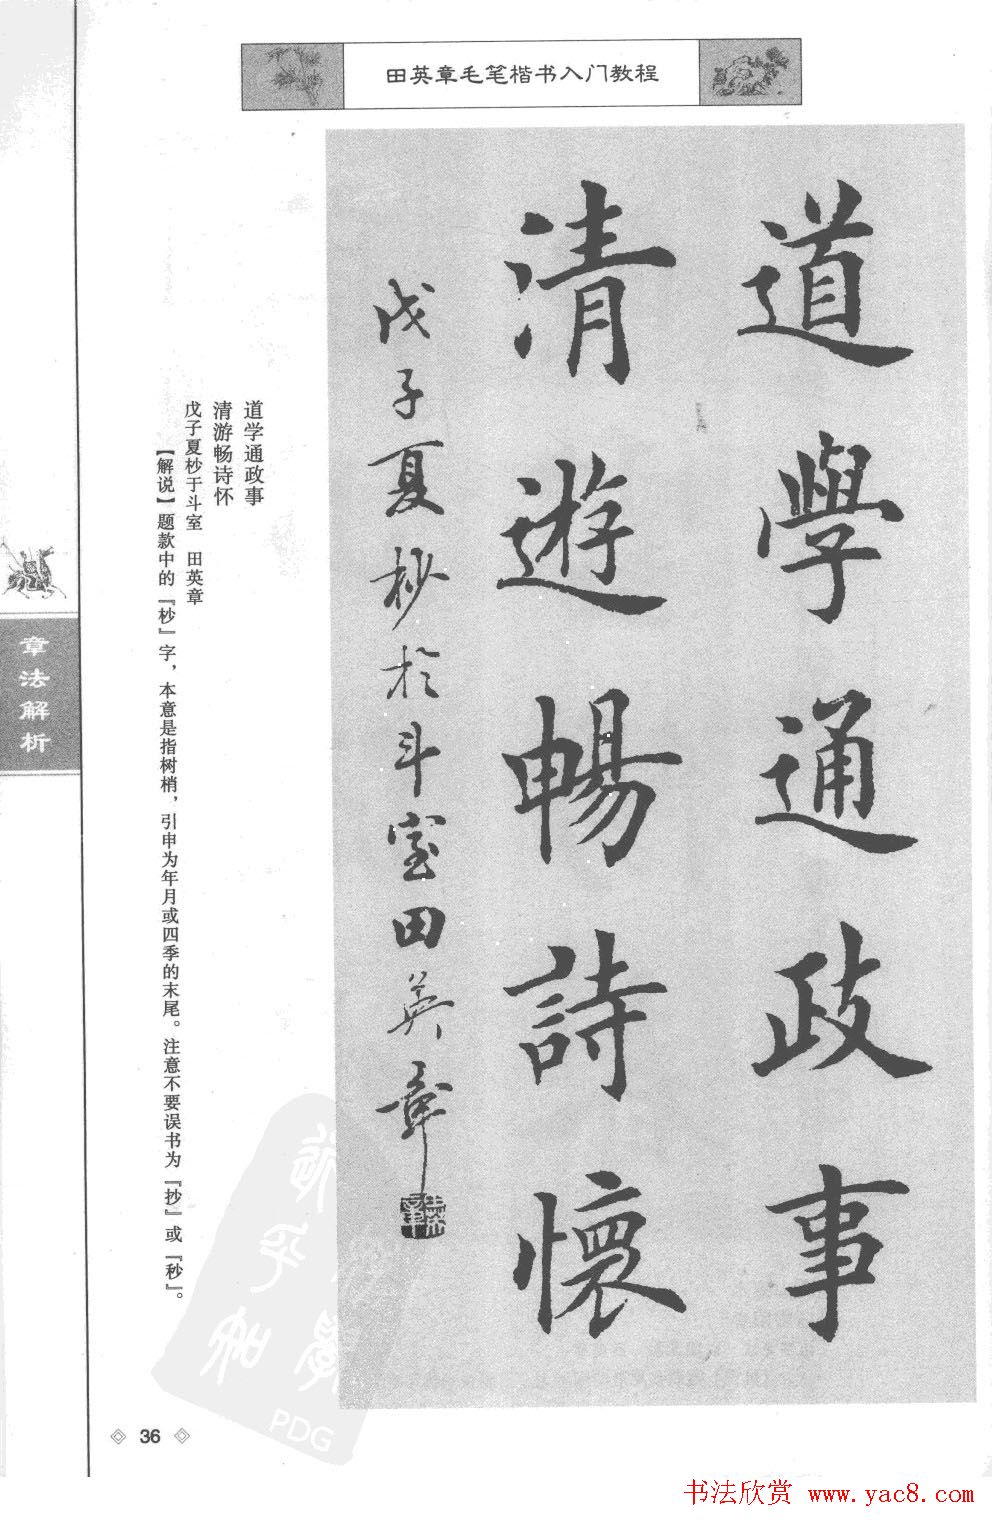 田英章毛笔楷书入门教程
道學通政事
清遊暢詩懷
戊子夏杪於斗室田英章
道学通政事
清游畅诗怀
戊子夏杪于斗室 田英章
【解说】题款中的『杪』字，本意是指树梢，引申为年月或四季的末尾。注意不要误书为『抄』或『秒』。
章法解析
36
PDG
书法欣赏 www.yac8.com